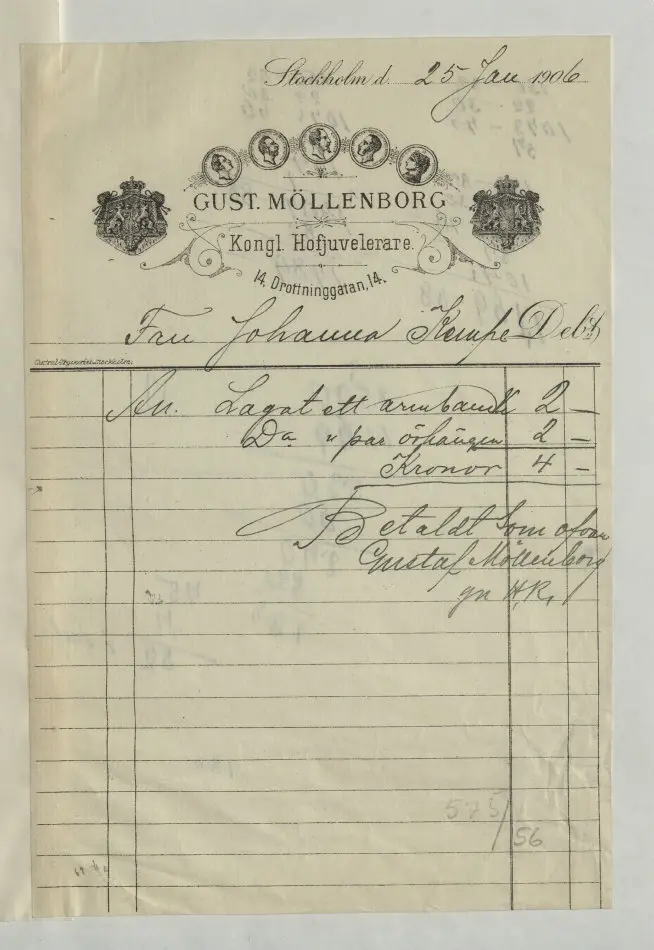 Stockholm d. 25 Jan 1906
GUST. MÖLLENBORG
Kongl. Hofjuvelerare.
14, Drottninggatan, 14.
Fru Johanna Kempe Debt
Central-Tryckeriet, Stockholm.
An. Lagat ett armband 2 –
Do " par örhängen 2 –
Kronor 4 –
Betaldt som ofvan
Gustaf Möllenborg
gn H. R.
575/56